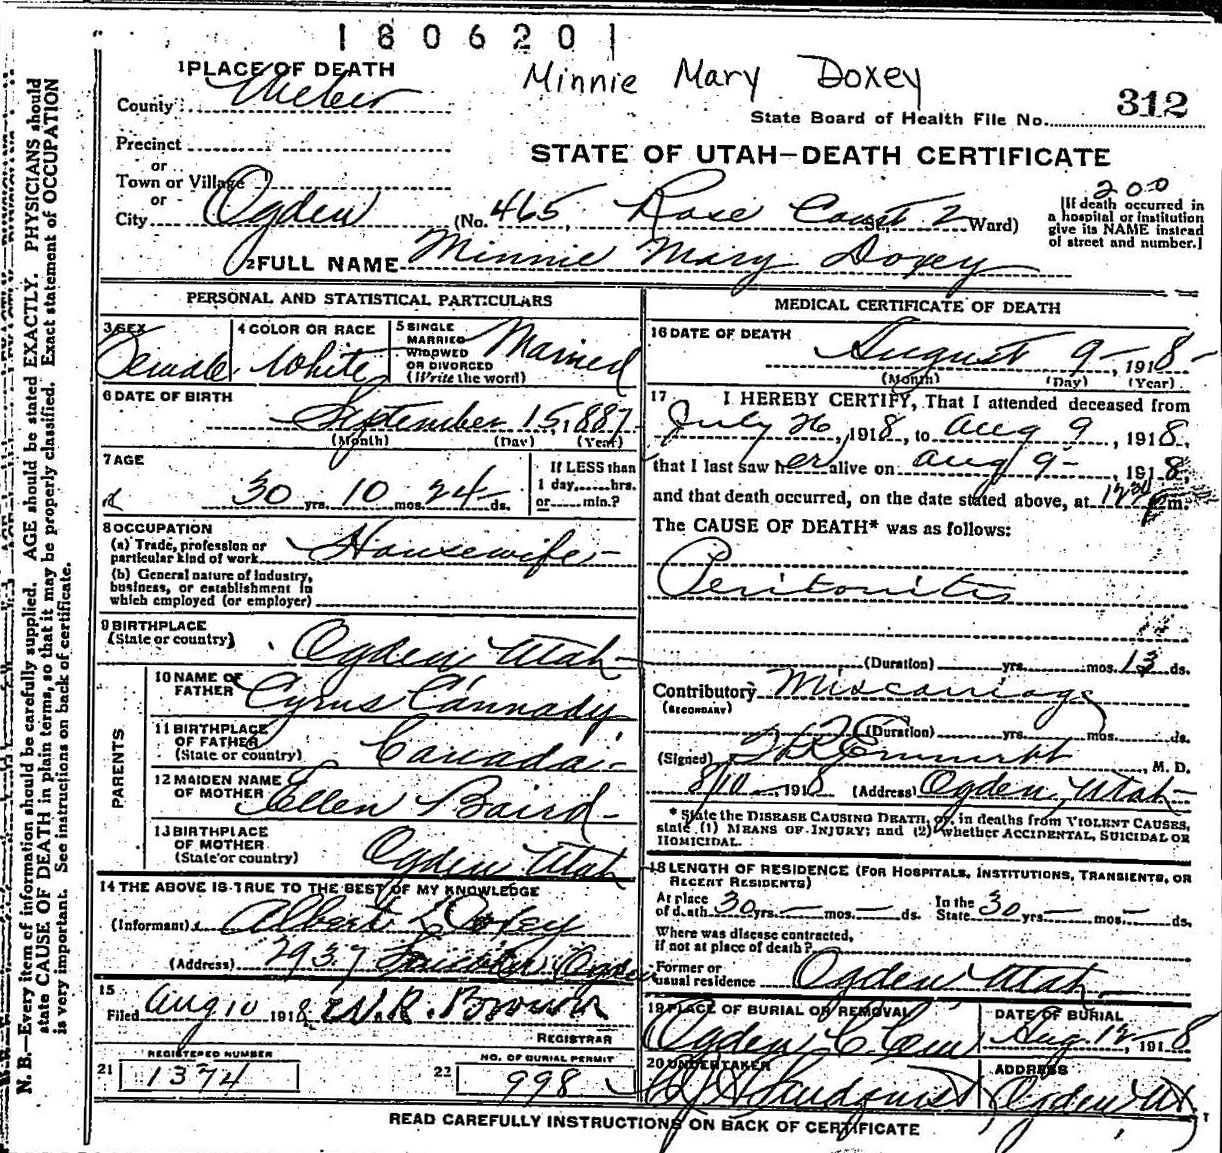 1806201
Minnie Mary Doxey
1 PLACE OF DEATH
County Weber
312
State Board of Health File No.
Precinct
or
STATE OF UTAH—DEATH CERTIFICATE
Town or Village
or
200
City Ogden (No. 465, Rose Court St., 2 Ward)
[If death occurred in
a hospital or institution
give its NAME instead
of street and number.]
2 FULL NAME Minnie Mary Doxey
PERSONAL AND STATISTICAL PARTICULARS
3 SEX
Female
4 COLOR OR RACE
White
5 SINGLE
MARRIED
WIDOWED
OR DIVORCED
(Write the word)
Married
6 DATE OF BIRTH
September 15, 1887
(Month) (Day) (Year)
7 AGE
30 yrs. 10 mos. 24 ds.
If LESS than
1 day,......hrs.
or......min.?
8 OCCUPATION
(a) Trade, profession or
particular kind of work Housewife
(b) General nature of industry,
business, or establishment in
which employed (or employer)
9 BIRTHPLACE
(State or country) Ogden Utah
PARENTS
10 NAME OF
FATHER Cyrus Cannady
11 BIRTHPLACE
OF FATHER
(State or country) Canada
12 MAIDEN NAME
OF MOTHER Ellen Baird
13 BIRTHPLACE
OF MOTHER
(State or country) Ogden Utah
14 THE ABOVE IS TRUE TO THE BEST OF MY KNOWLEDGE
(Informant) Albert Doxey
(Address) 2937 Ogden
15
Filed Aug 10 1918 W.R. Brown
REGISTRAR
REGISTERED NUMBER
21 1374
NO. OF BURIAL PERMIT
22 998
MEDICAL CERTIFICATE OF DEATH
16 DATE OF DEATH
August 9, 1918
(Month) (Day) (Year)
17 I HEREBY CERTIFY, That I attended deceased from
July 26, 1918, to Aug 9, 1918,
that I last saw her alive on Aug 9, 1918
and that death occurred, on the date stated above, at m.
The CAUSE OF DEATH* was as follows:
Peritonitis
(Duration) yrs. mos. 13 ds.
Contributory Miscarriage
(SECONDARY)
(Duration) yrs. mos. ds.
(Signed) Emmett, M. D.
8/10, 1918 (Address) Ogden, Utah
* State the DISEASE CAUSING DEATH, or, in deaths from VIOLENT CAUSES,
state (1) MEANS OF INJURY; and (2) whether ACCIDENTAL, SUICIDAL OR
HOMICIDAL.
18 LENGTH OF RESIDENCE (FOR HOSPITALS, INSTITUTIONS, TRANSIENTS, OR
RECENT RESIDENTS)
At place
of death 30 yrs. mos. ds.
In the
State 30 yrs. mos. ds.
Where was disease contracted,
if not at place of death?
Former or
usual residence Ogden Utah
19 PLACE OF BURIAL OR REMOVAL
Ogden C Cem
DATE OF BURIAL
Aug. 12, 1918
20 UNDERTAKER
ADDRESS
Ogden Ut.
READ CAREFULLY INSTRUCTIONS ON BACK OF CERTIFICATE
N. B.—Every item of information should be carefully supplied. AGE should be stated EXACTLY. PHYSICIANS should
state CAUSE OF DEATH in plain terms, so that it may be properly classified. Exact statement of OCCUPATION
is very important. See instructions on back of certificate.